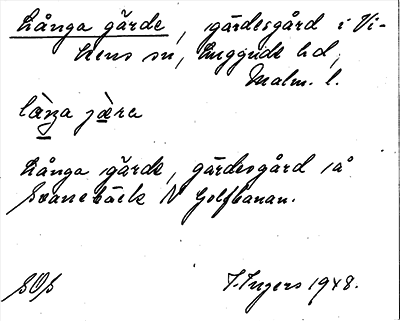 Långa gärde, gärdesgård i Vi-
kens sn, Luggude hd,
Malm. l.
lànga jæra
Långa gärde, gärdesgård på
Svanebäck N Golfbanan.
I. Ingers 1948.